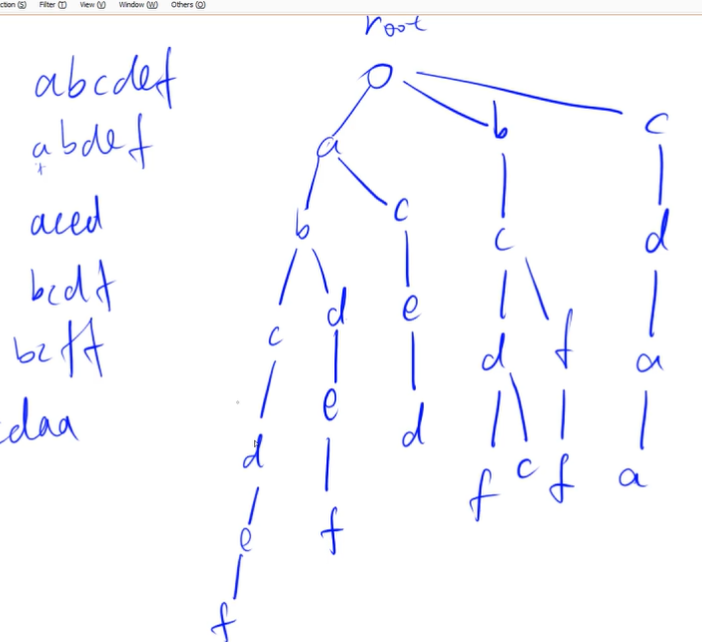 ction (S) Filter (T) View (V) Window (W) Others (O)
root
abcdef
abdef
aced
bcdf
bcff
cdaa
a b c
b c c d
c d e d f a
d e d f c f a
e f
f